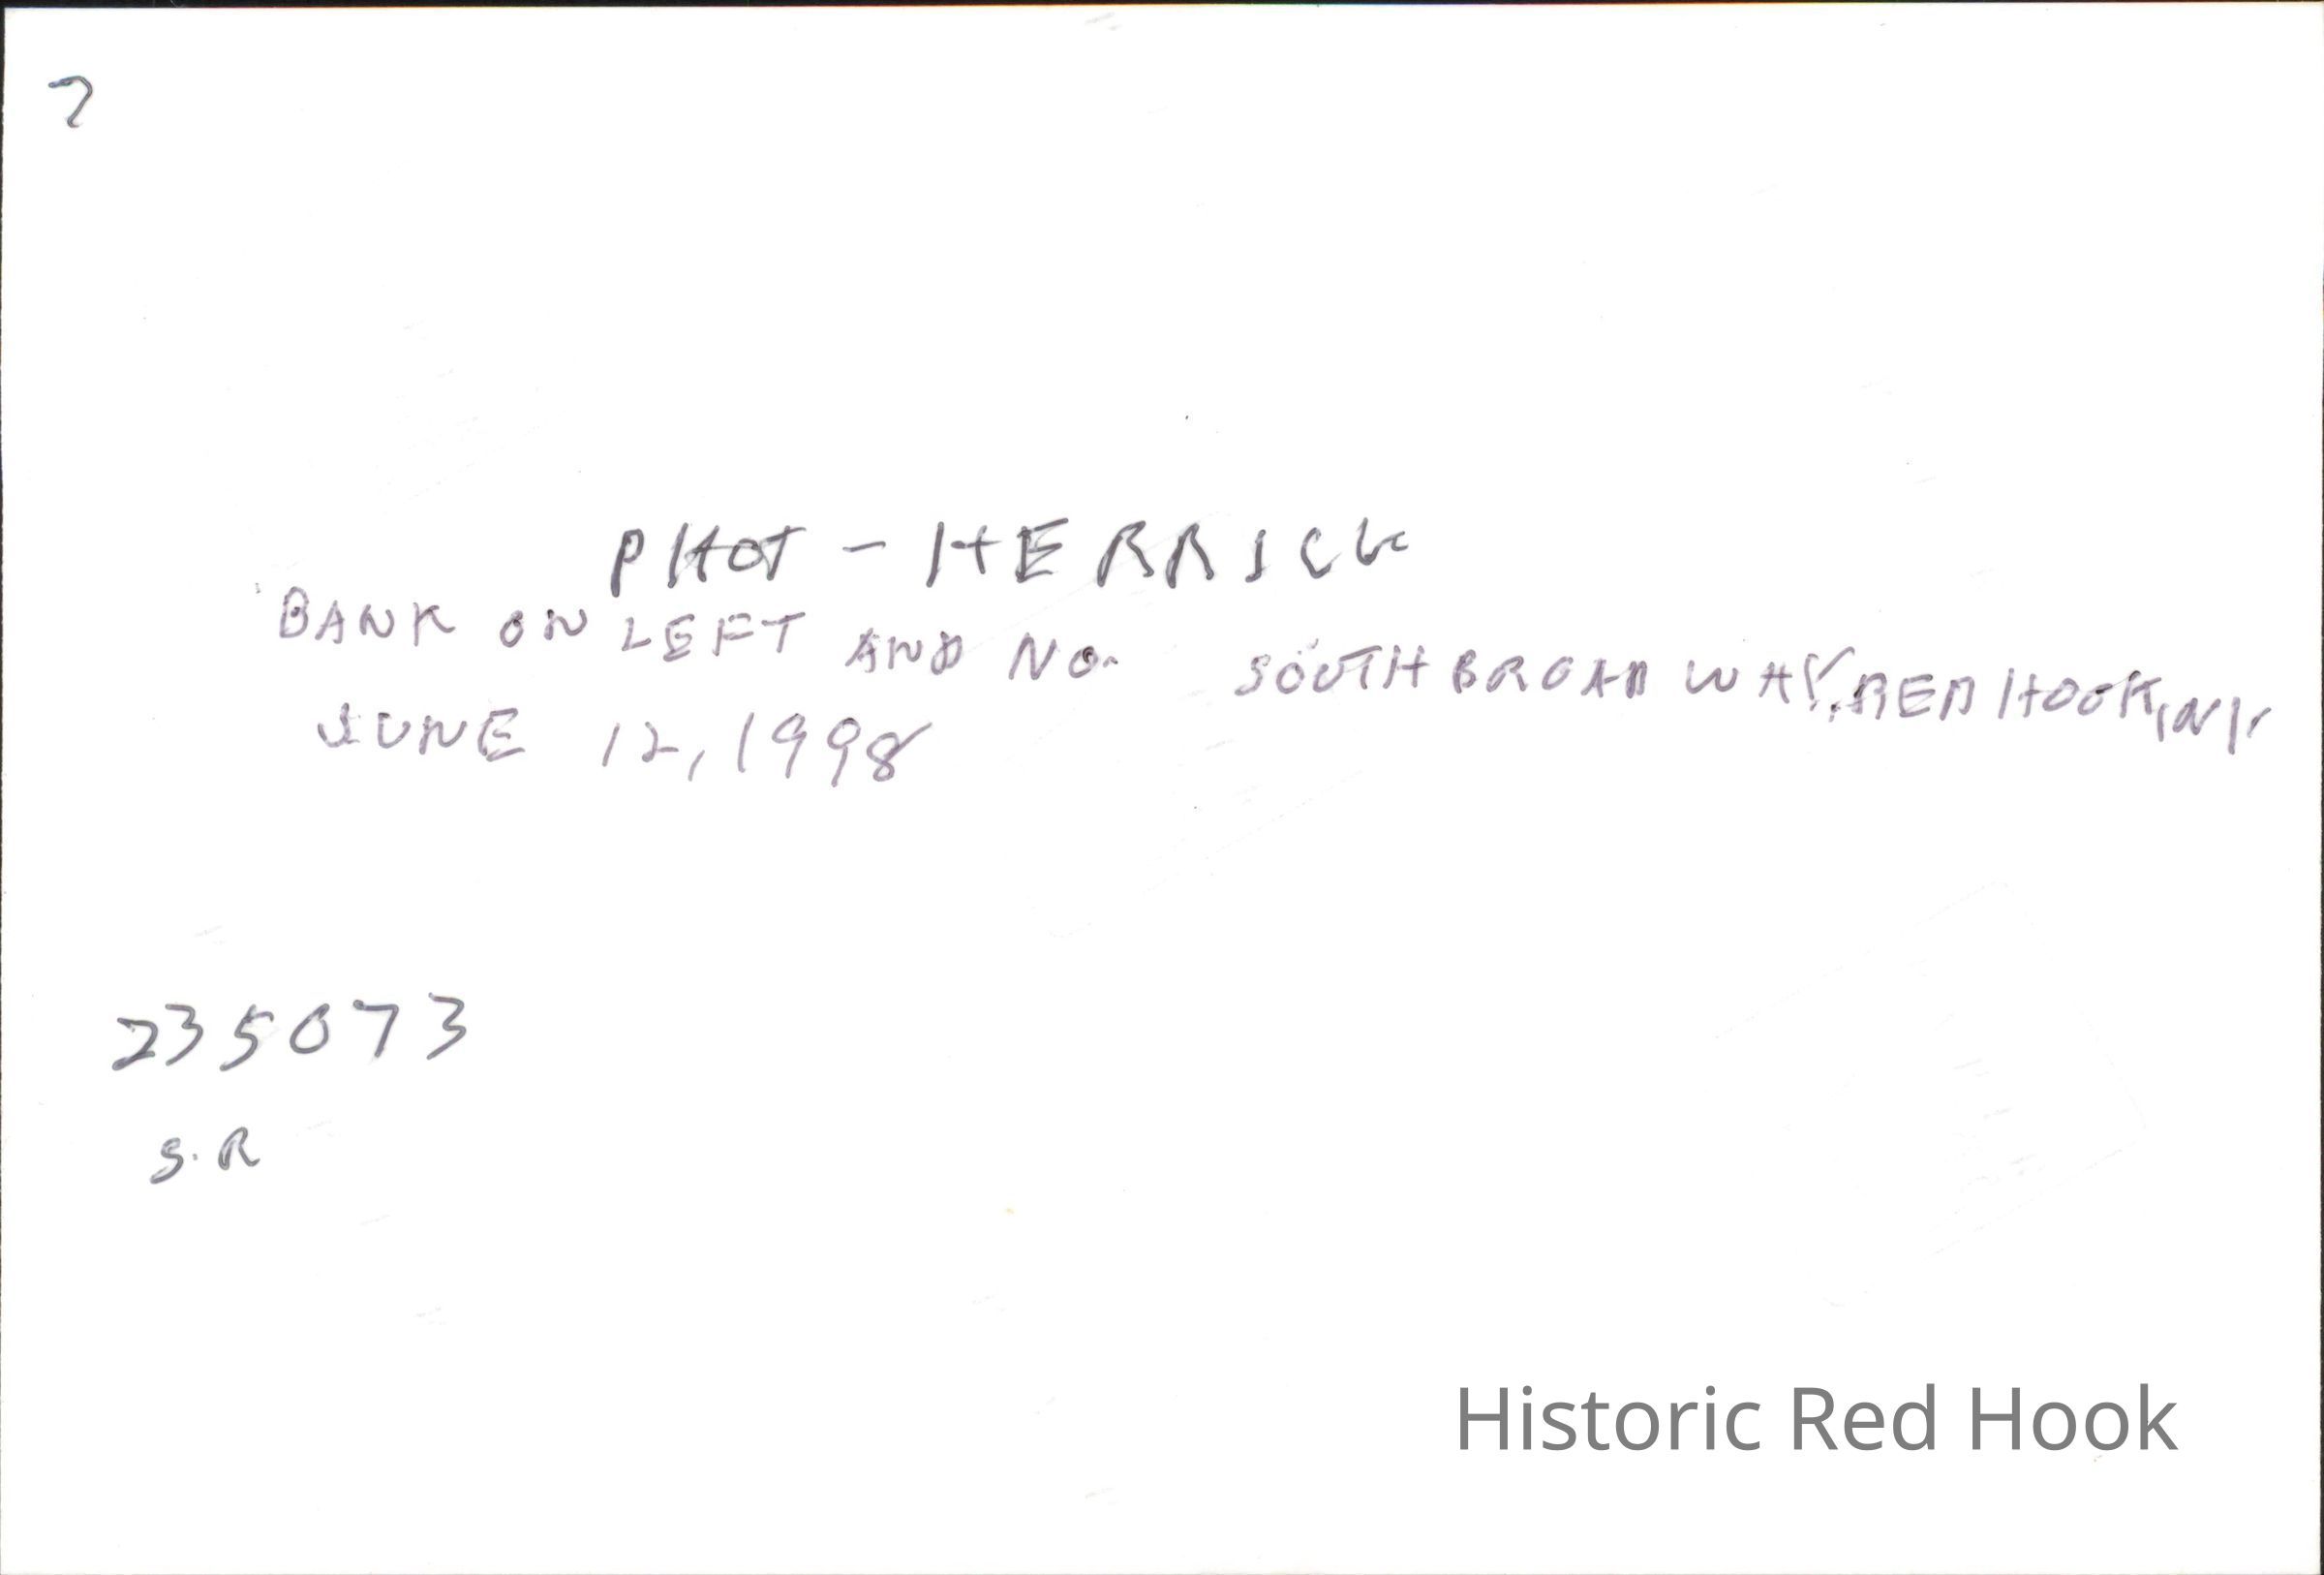 7
PHOT - HERRICK
BANK ON LEFT AND NO. SOUTH BROADWAY, RED HOOK, NY
JUNE 12, 1998
235073
S.R
Historic Red Hook